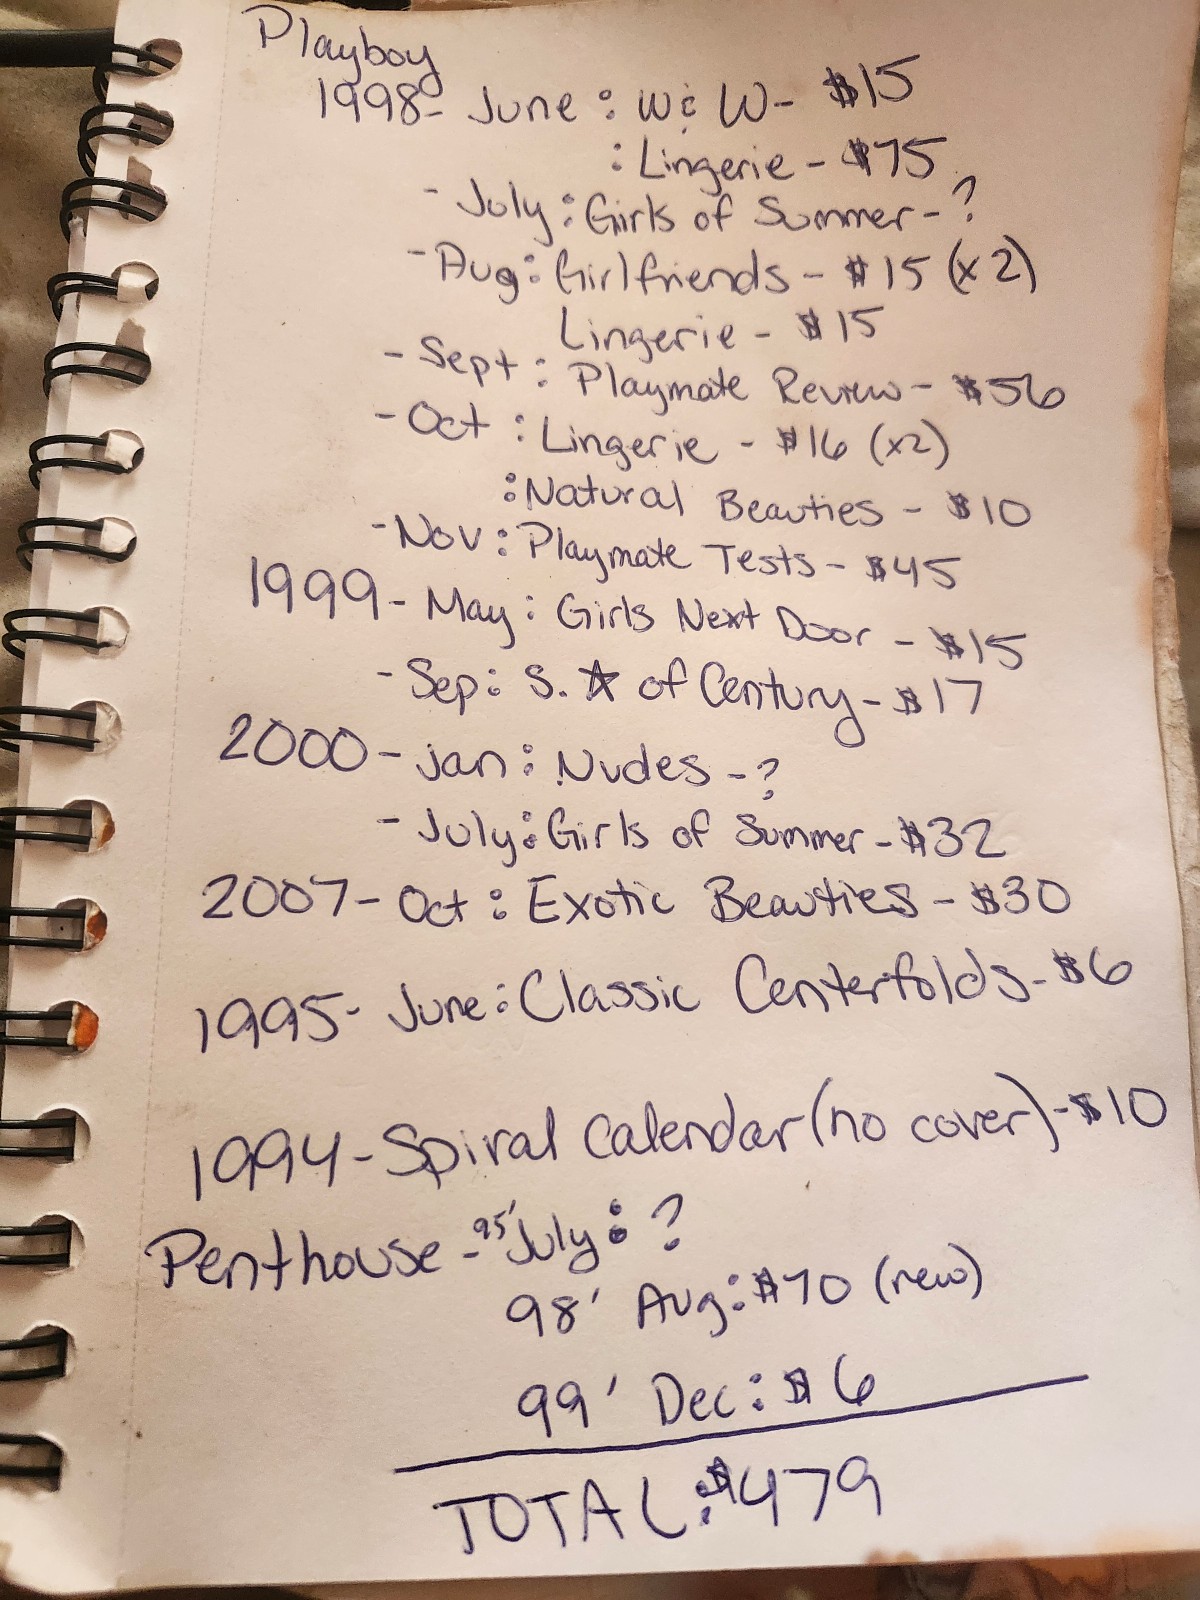 Playboy
1998- June : W & W- $15
: Lingerie - $75
- July : Girls of Summer - ?
- Aug : Girlfriends - $15 (x2)
Lingerie - $15
- Sept : Playmate Review - $56
- Oct : Lingerie - $16 (x2)
: Natural Beauties - $10
- Nov : Playmate Tests - $45
1999 - May : Girls Next Door - $15
- Sep : S. ☆ of Century - $17
2000 - Jan : Nudes - ?
- July : Girls of Summer - $32
2007 - Oct : Exotic Beauties - $30
1995- June : Classic Centerfolds - $6
1994 - Spiral Calendar (no cover) - $10
Penthouse - 95' July : ?
98' Aug : $70 (new)
99' Dec : $6
TOTAL : $479